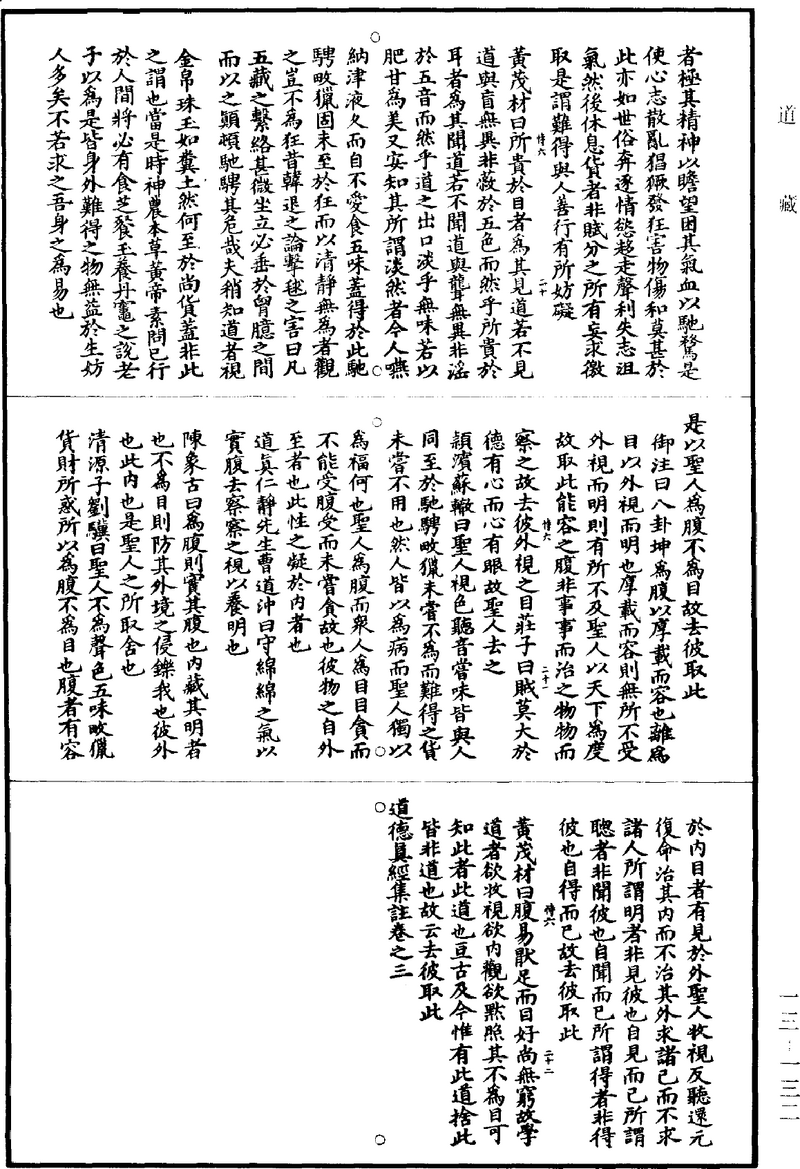 道藏
者極其精神以瞻望困其氣血以馳騖是
使心志散亂猖獗發狂害物傷和莫甚於
此亦如世俗奔逐情慾趍走聲利失志沮
氣然後休息貨者非賦分之所有妄求儌
取是謂難得與人善行有所妨礙
黃茂材曰所貴於目者為其見道若不見
道與盲無異非蔽於五色而然乎所貴於
耳者為其聞道若不聞道與聾無異非淫
於五音而然乎道之出口淡乎無味若以
肥甘為美又安知其所謂淡然者令人嚥
納津液久而自不愛食五味蓋得於此馳
騁畋獵固未至於狂而以清靜無為者觀
之豈不為狂昔韓退之論擊毬之害曰凡
五藏之繫絡甚微坐立必垂於胷臆之間
而以之顛頓馳騁其危哉夫稍知道者視
金帛珠玉如糞土然何至於尚貨蓋非此
之謂也當是時神農本草黃帝素問已行
於人間將必有食芝餐玉養丹竈之說老
子以為是皆身外難得之物無益於生妨
人多矣不若求之吾身之為易也
是以聖人為腹不為目故去彼取此
御注曰八卦坤為腹以厚載而容也離為
目以外視而明也厚載而容則無所不受
外視而明則有所不及聖人以天下為度
故取此能容之腹非事事而治之物物而
察之故去彼外視之目莊子曰賊莫大於
德有心而心有眼故聖人去之
頴濱蘇轍曰聖人視色聽音嘗味皆與人
同至於馳騁畋獵未嘗不為而難得之貨
未嘗不用也然人皆以為病而聖人獨以
為福何也聖人為腹而衆人為目目貪而
不能受腹受而未嘗貪故也彼物之自外
至者也此性之凝於內者也
道真仁靜先生曹道沖曰守綿綿之氣以
實腹去察察之視以養明也
陳象古曰為腹則實其腹也內藏其明者
也不為目則防其外境之侵鑠我也彼外
也此內也是聖人之所取舍也
清源子劉驥曰聖人不為聲色五味畋獵
貨財所惑所以為腹不為目也腹者有容
於內目者有見於外聖人收視反聽還元
復命治其內而不治其外求諸己而不求
諸人所謂明者非見彼也自見而已所謂
聰者非聞彼也自聞而已所謂得者非得
彼也自得而已故去彼取此
黃茂材曰腹易猒足而目好尚無窮故學
道者欲收視欲內觀欲默照其不為目可
知此者此道也亘古及今惟有此道捨此
皆非道也故云去彼取此
道德真經集註卷之三
一三—一三二